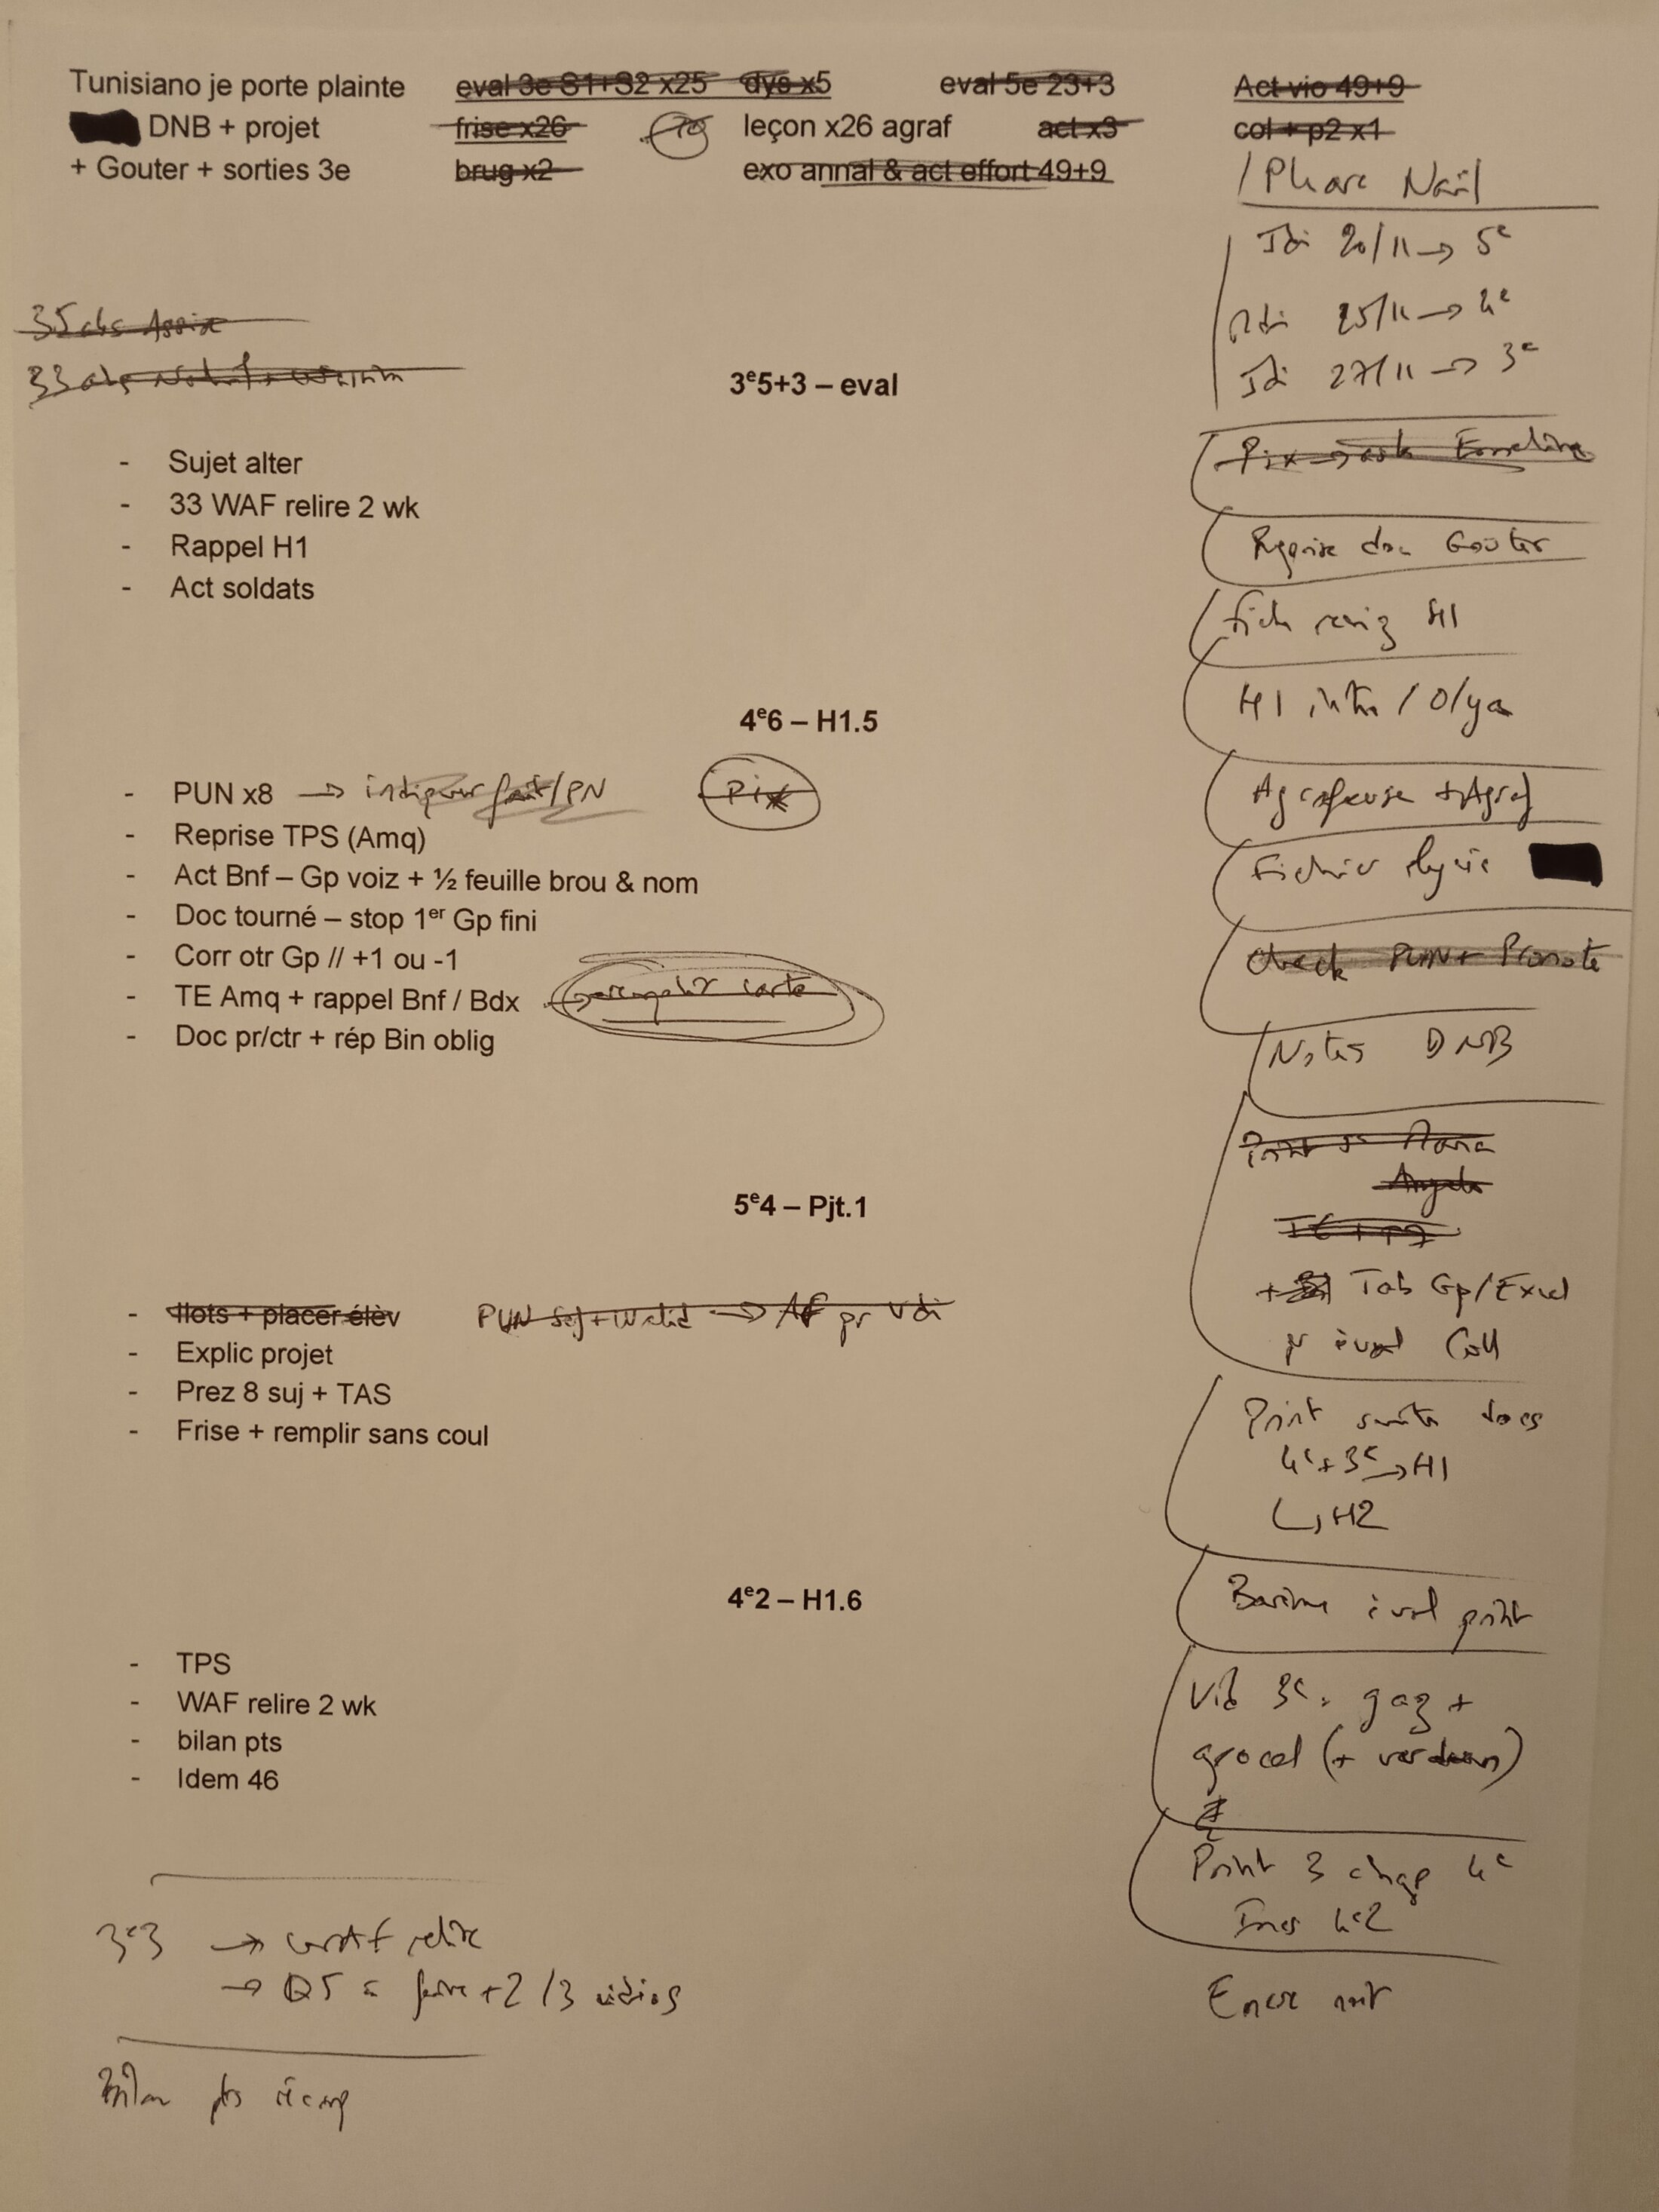 Tunisiano je porte plainte eval 3e S1+S2 x25 dys x5 eval 5e 23+3 Act vio 49+9
DNB + projet frise x26 leçon x26 agraf act x3 col + p2 x1
+ Gouter + sorties 3e brug x2 exo annal & act effort 49+9
/ Phare Naïl
Jdi 20/11 → 5e
Mdi 25/11 → 4e
Jdi 27/11 → 3e
35 abs Assia
33 abs
3e5+3 – eval
- Sujet alter
- 33 WAF relire 2 wk
- Rappel H1
- Act soldats
4e6 – H1.5
- PUN x8 → indiquer fait/PN Pix
- Reprise TPS (Amq)
- Act Bnf – Gp voiz + ½ feuille brou & nom
- Doc tourné – stop 1er Gp fini
- Corr otr Gp // +1 ou -1
- TE Amq + rappel Bnf / Bdx → remplir carte
- Doc pr/ctr + rép Bin oblig
5e4 – Pjt.1
- Ilots + placer élèv PUN + Walid → AF pr Vdi
- Explic projet
- Prez 8 suj + TAS
- Frise + remplir sans coul
4e2 – H1.6
- TPS
- WAF relire 2 wk
- bilan pts
- Idem 46
3e3 → relire
→ Q5 à faire + 2/3 vidéos
Bilan pts récap
Pix → ask Emeline
Reprise doc Goûter
Fich réviz H1
H1 intro / O/ya
Agrafeuse + Agraf
Fichier lycée
Check PUN + Pronote
Notes DNB
Print
+ Tab Gp/Excel
pr éval Coll
Print suite docs
4e + 3e → H1
↳ H2
Barème éval print
Vid 3e : gaz +
grocol (+ verdun)
Print 3 chap 4e
Ines 4e2
Encre noir